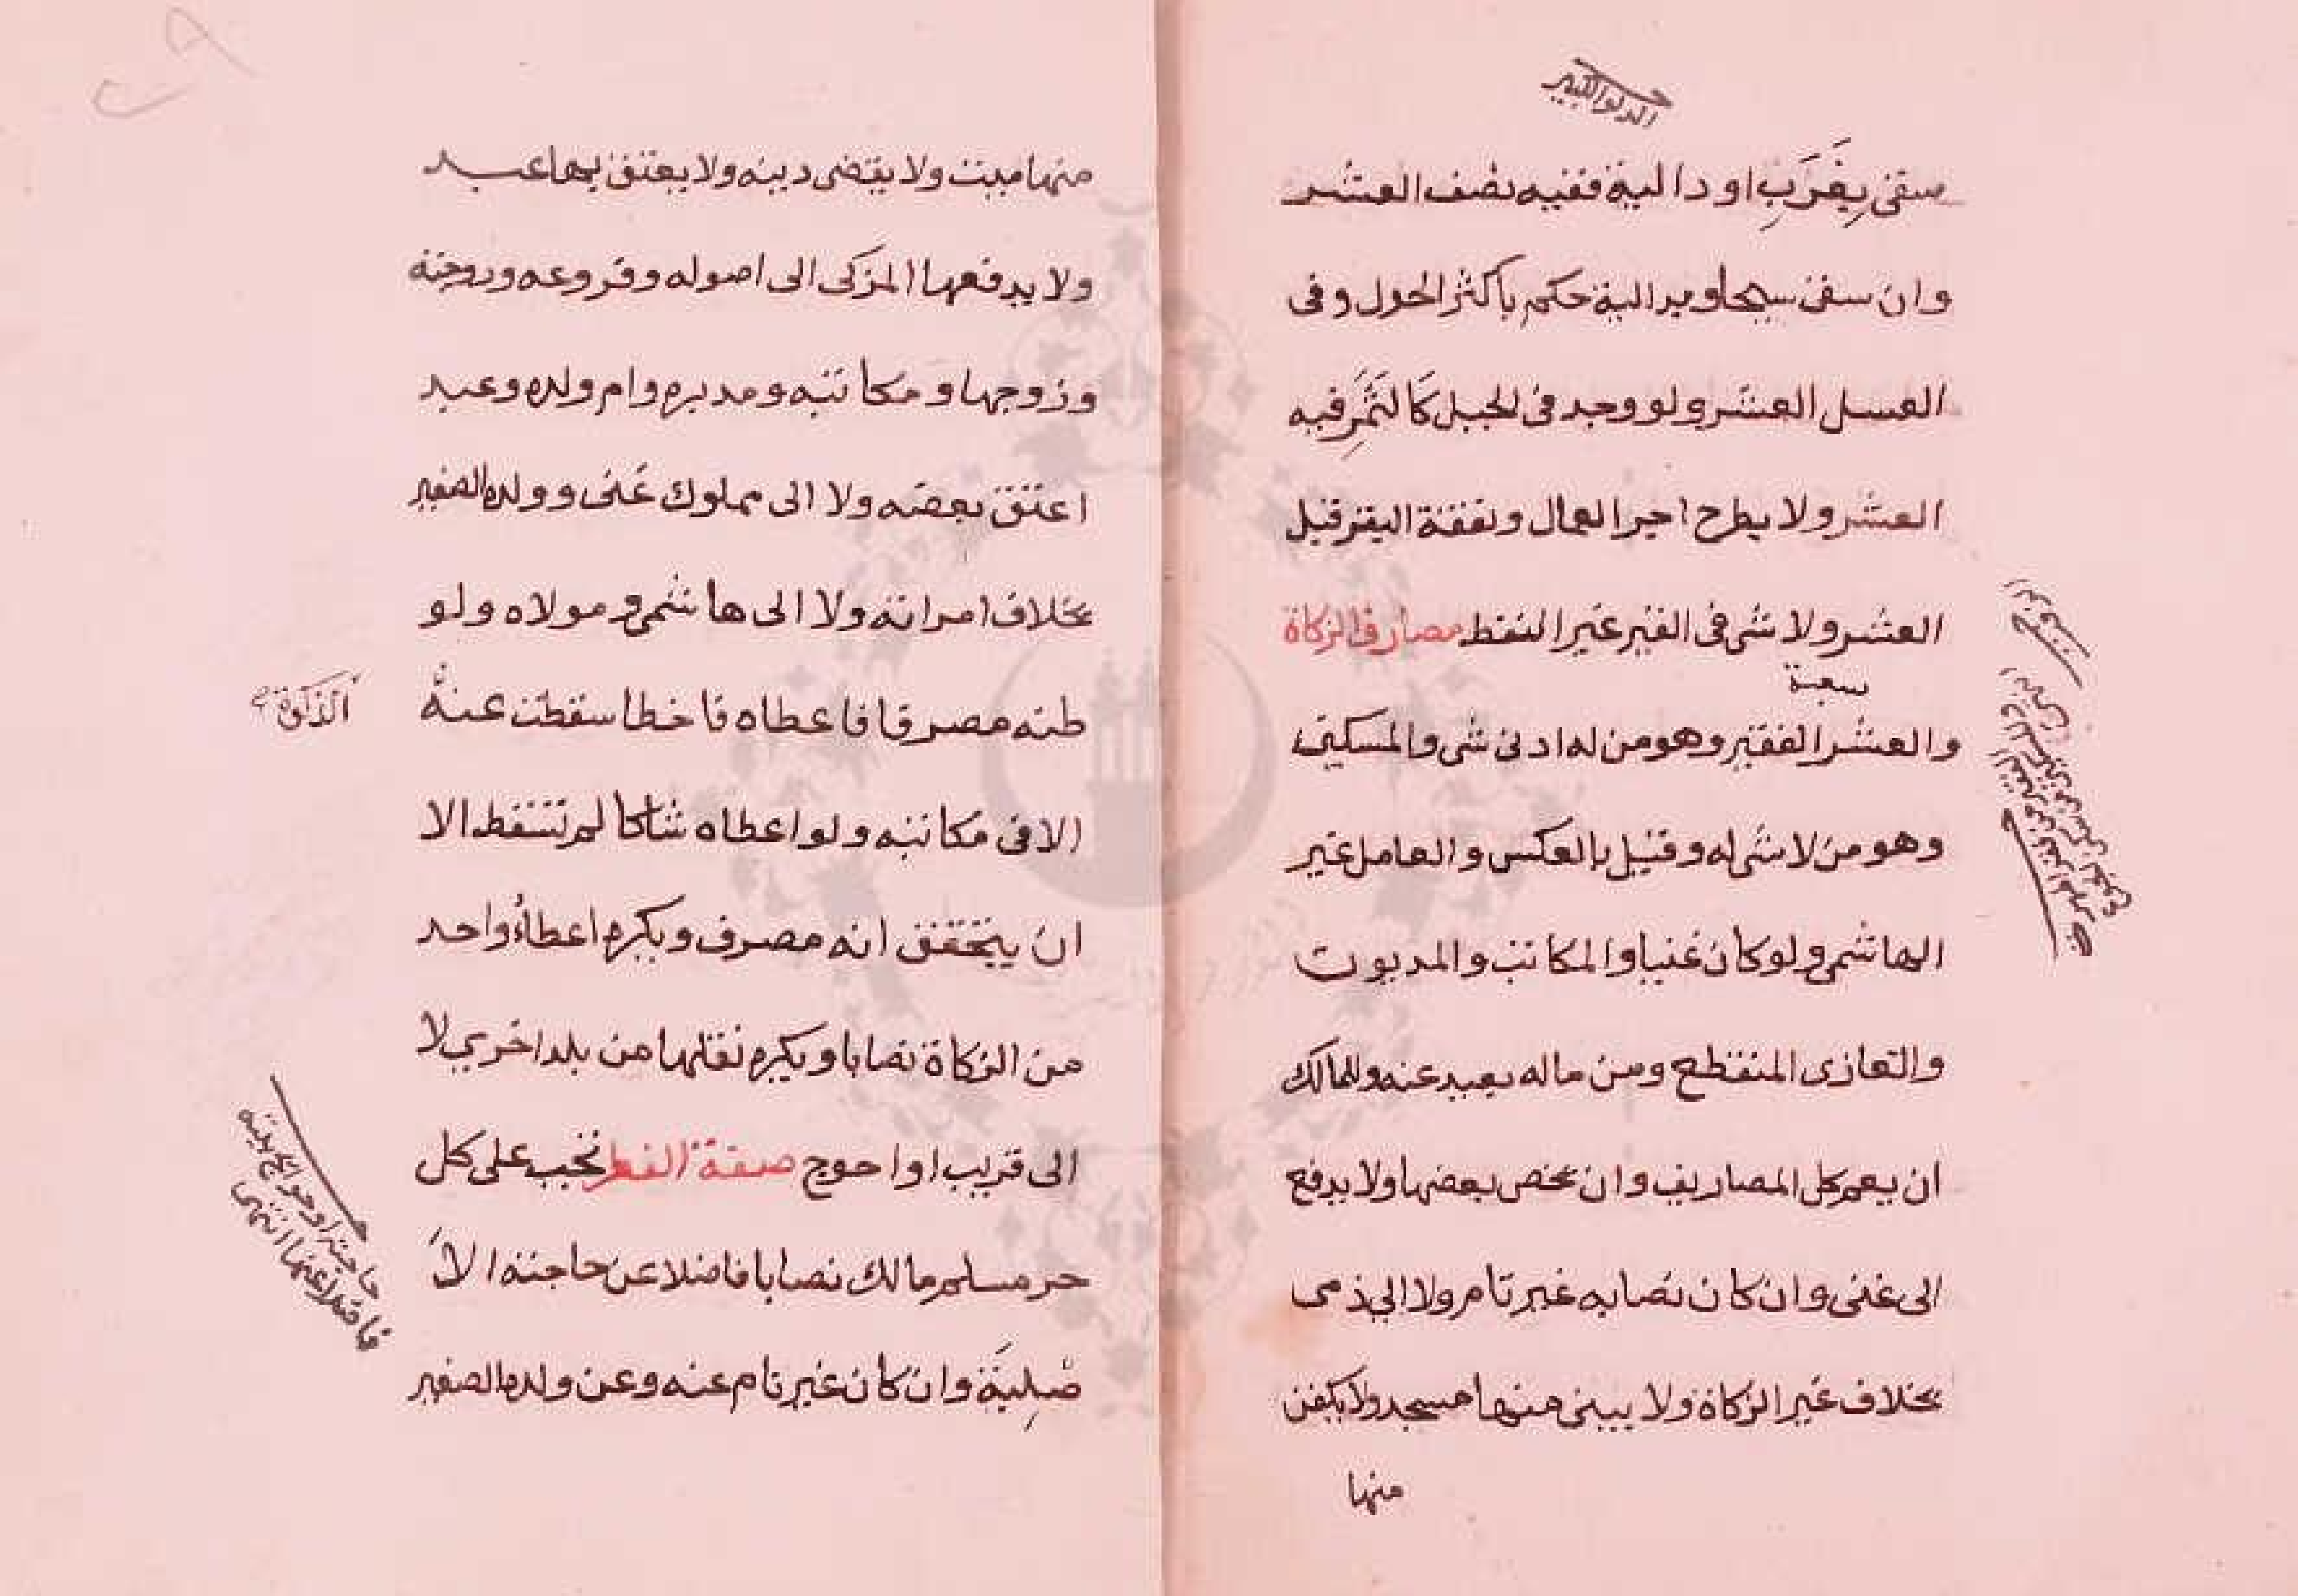 الدلو الكبير
سقى بِغَرَبٍ او دالية ففيه نصف العشر
وان سقى سيحا وبدالية حكم باكثر الحول وفى
العسل العشر ولو وجد فى الجبل كَالثَمَرِ فيه
العشر ولا يطرح اجر العمال ونفقة البقر قبل
العشر ولا شى فى القير غير النفط مصارف الزكاة
سبعة
والعشر الفقير وهو من له ادنى شى والمسكين
وهو من لا شى له وقيل بالعكس والعامل غير
الهاشمى ولو كان غنيا والمكاتب والمديون
والغازى المنقطع ومن ماله بعيد عنه وللمالك
ان يعم كل المصاريف وان يخص بعضها ولا يدفع
الى غنى وان كان نصابه غير تام ولا الى ذمى
بخلاف غير الزكاة ولا يبنى منها مسجد ولا يكفن
منها
منها ميت ولا يقضى دينه ولا يعتق بها عبد
ولا يدفعها المزكى الى اصوله وفروعه وزوجته
وزوجها ومكاتبه ومدبره وام ولده وعبد
اعتق بعضه ولا الى مملوك غنى وولده الصغير
بخلاف امراته ولا الى هاشمى ومولاه ولو
ظنه مصرفا فاعطاه فاخطا سقطت عنه
الزكوة
الا فى مكاتبه ولو اعطاه شاكا لم تسقط الا
ان يتحقق انه مصرف ويكره اعطاء واحد
من الزكاة نصابا ويكره نقلها من بلد اخرى لا
الى قريب او احوج صدقة الفطر تجب على كل
حر مسلم مالك نصابا فاضلا عن حاجته الا
صلية وان كان غير تام عنه وعن ولده الصغير
حاجته او حوائج بيته
فاضلا عنها انتهى